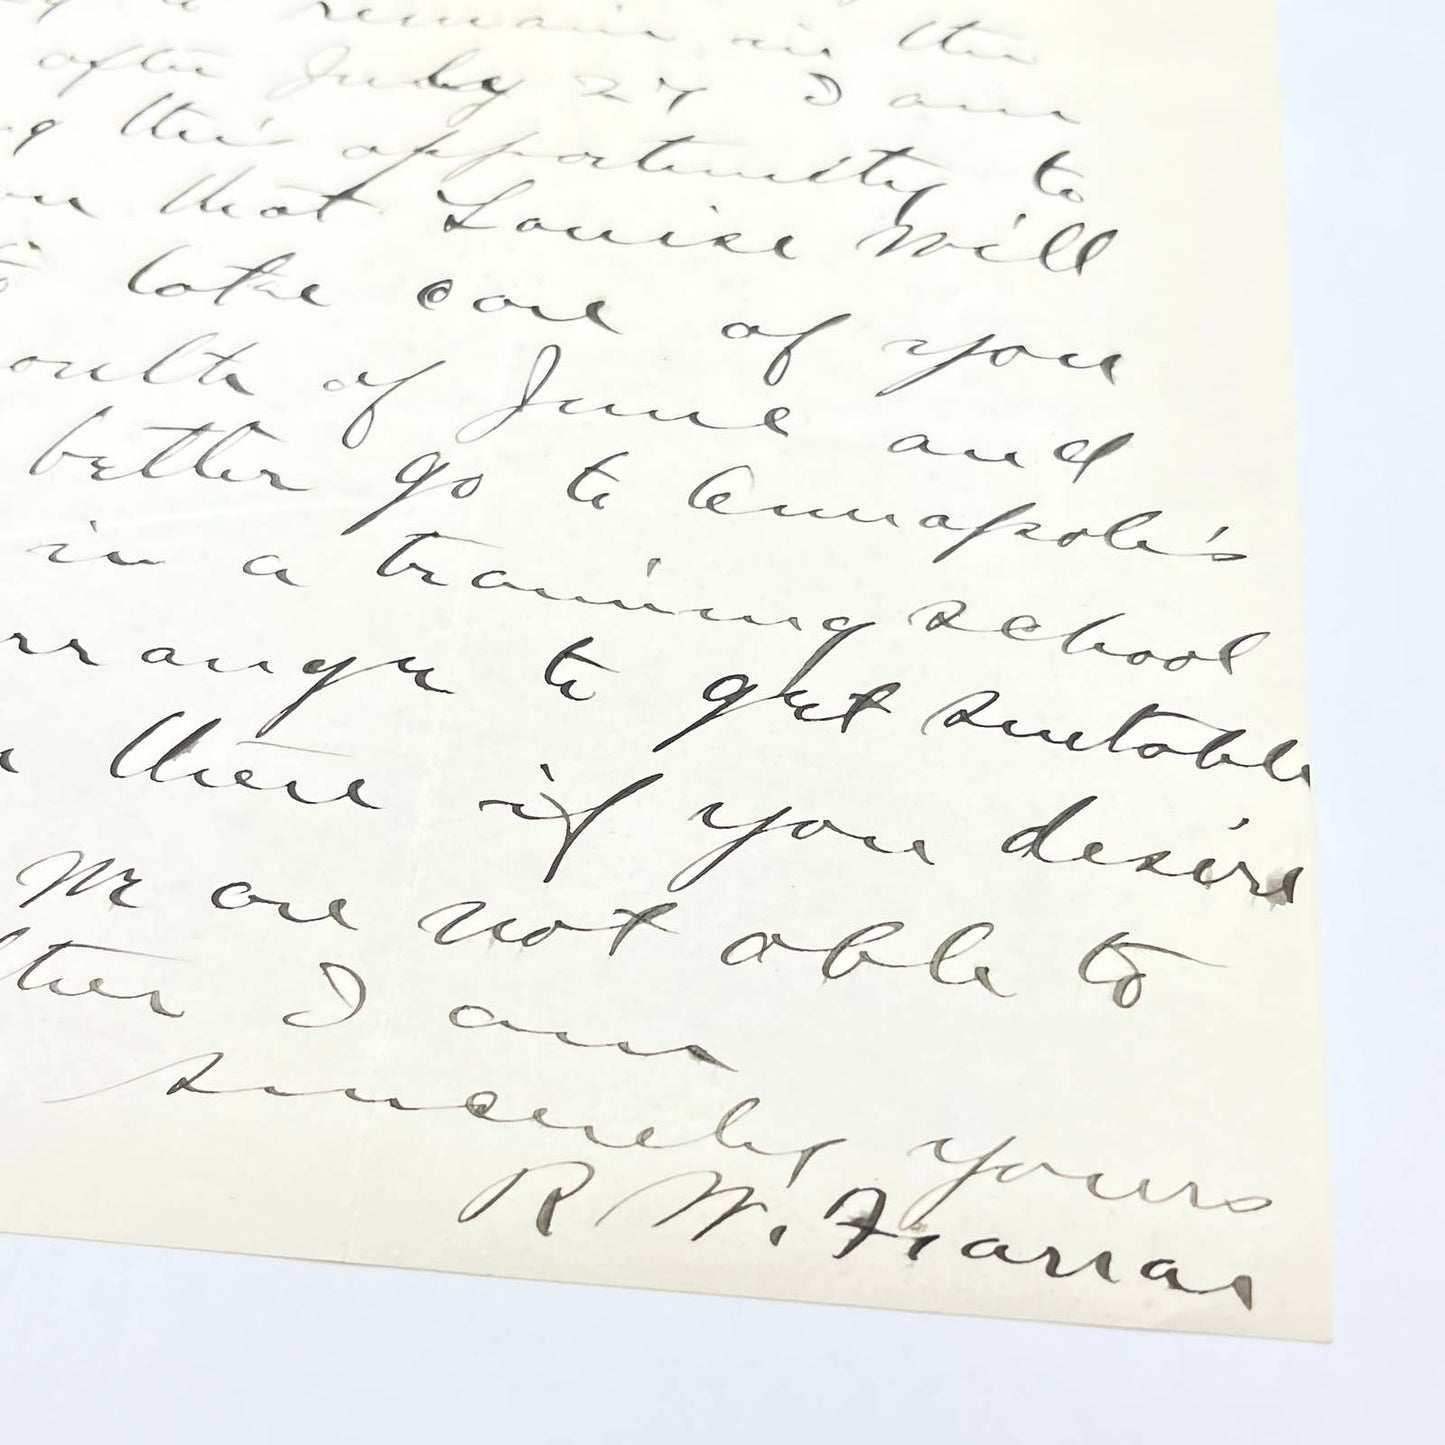 remain in the
after July 27 I am
this opportunity to
that Louise will
take care of you
of June and
better go to Annapolis
in a training school
to get suitable
there if you desire
We are not able to
I am
Sincerely yours
R W.